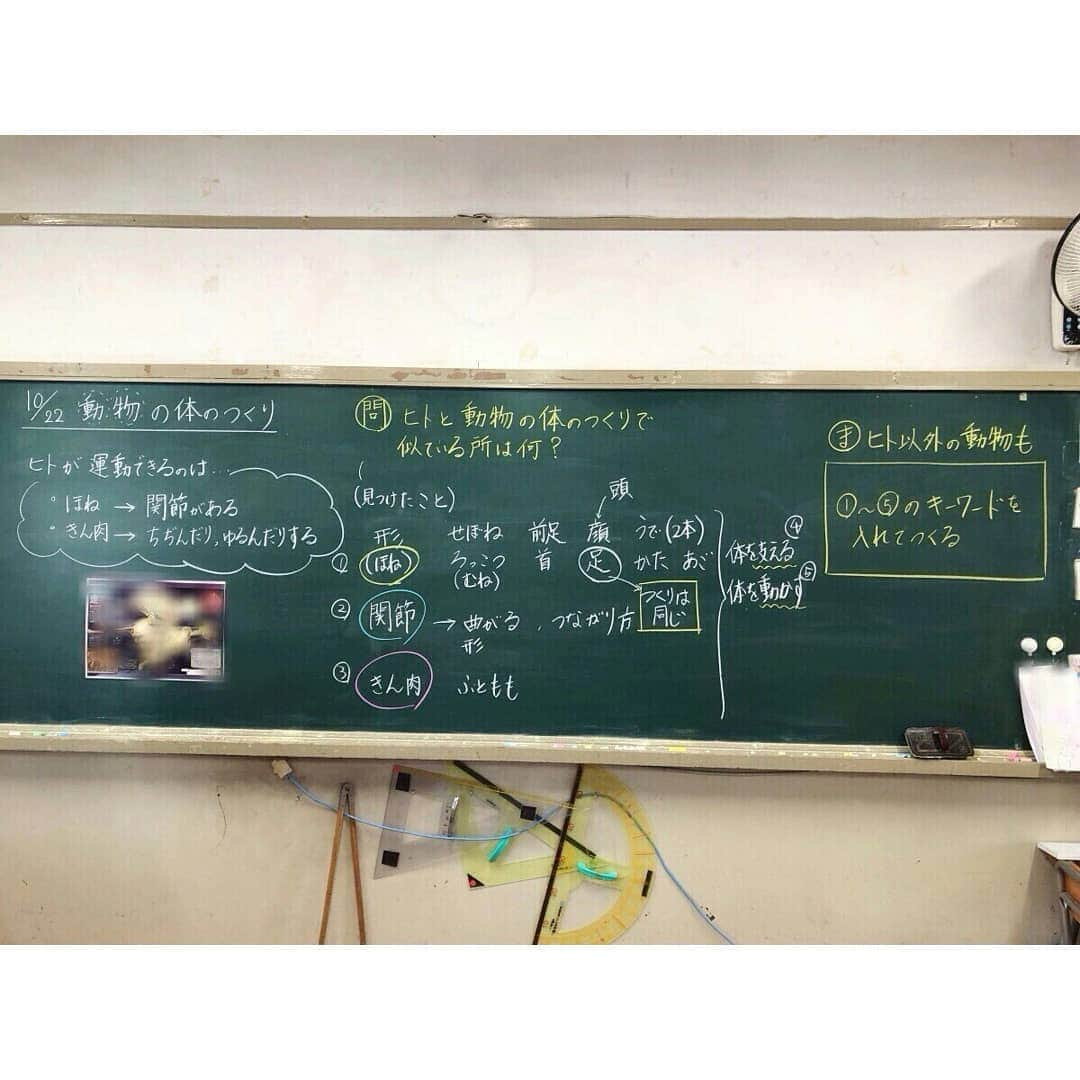 10/22 動物の体のつくり
ヒトが運動できるのは…
・ほね → 関節がある
・きん肉 → ちぢんだり、ゆるんだりする
問 ヒトと動物の体のつくりで
似ている所は何?
(見つけたこと)
頭
形 せぼね 前足 顔 うで(2本)
① (ほね) ろっこつ 首 足 かた あご
(むね)
② 関節 → 曲がる、つながり方
形
つくりは
同じ
③ きん肉 ふともも
体を支える ④
体を動かす ⑤
ま ヒト以外の動物も
①〜⑤のキーワードを
入れてつくる